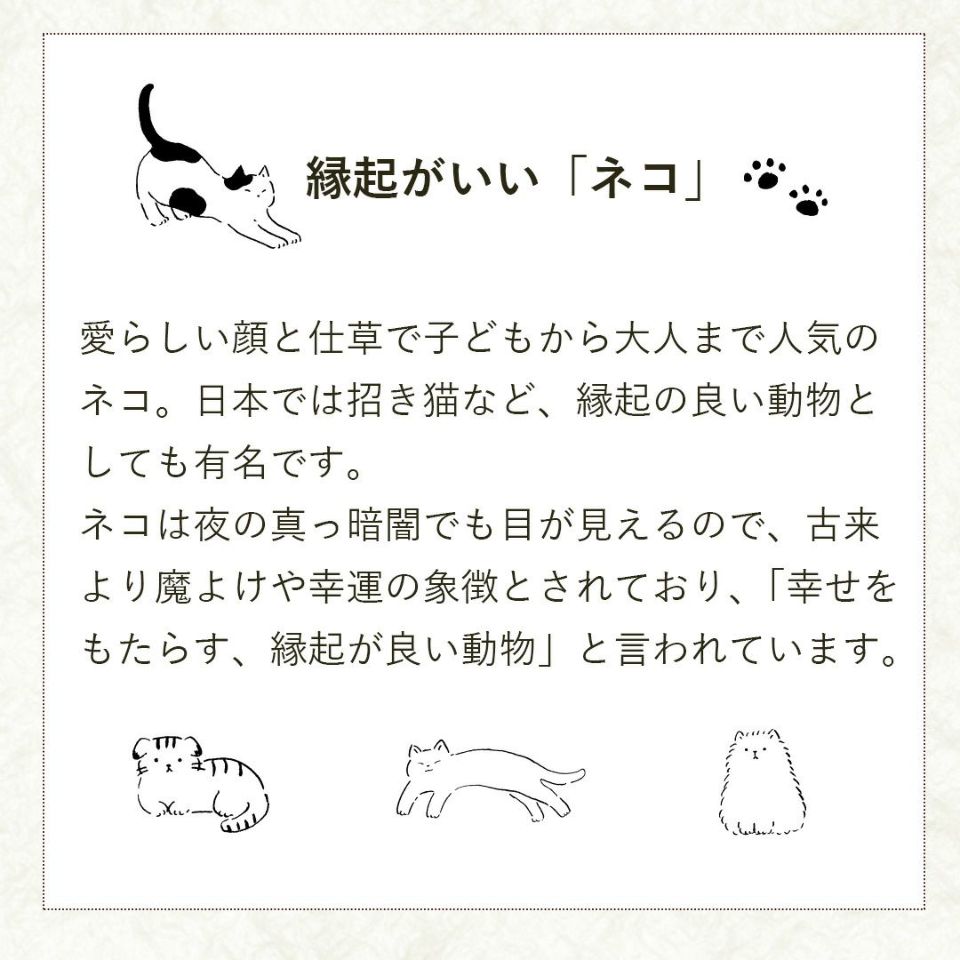 縁起がいい「ネコ」
愛らしい顔と仕草で子どもから大人まで人気の
ネコ。日本では招き猫など、縁起の良い動物と
しても有名です。
ネコは夜の真っ暗闇でも目が見えるので、古来
より魔よけや幸運の象徴とされており、「幸せを
もたらす、縁起が良い動物」と言われています。